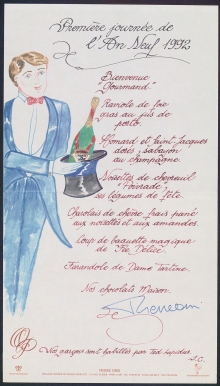 Première journée de
l'An Neuf 1992
Bienvenue
"Gourmand"
Raviole de foie
gras au jus de
porto
Homard et Saint Jacques
dorés sabayon
au champagne
Noisettes de chevreuil
"Poivrade"
ses légumes de fête
Chevalais de chèvre frais pané
aux noisettes et aux amandes
Loup de baguette magique
de Fée Délice
Farandole de Dame Tartine
Nos chocolats Maison
Nos garçons sont habillés par Ted Lapidus